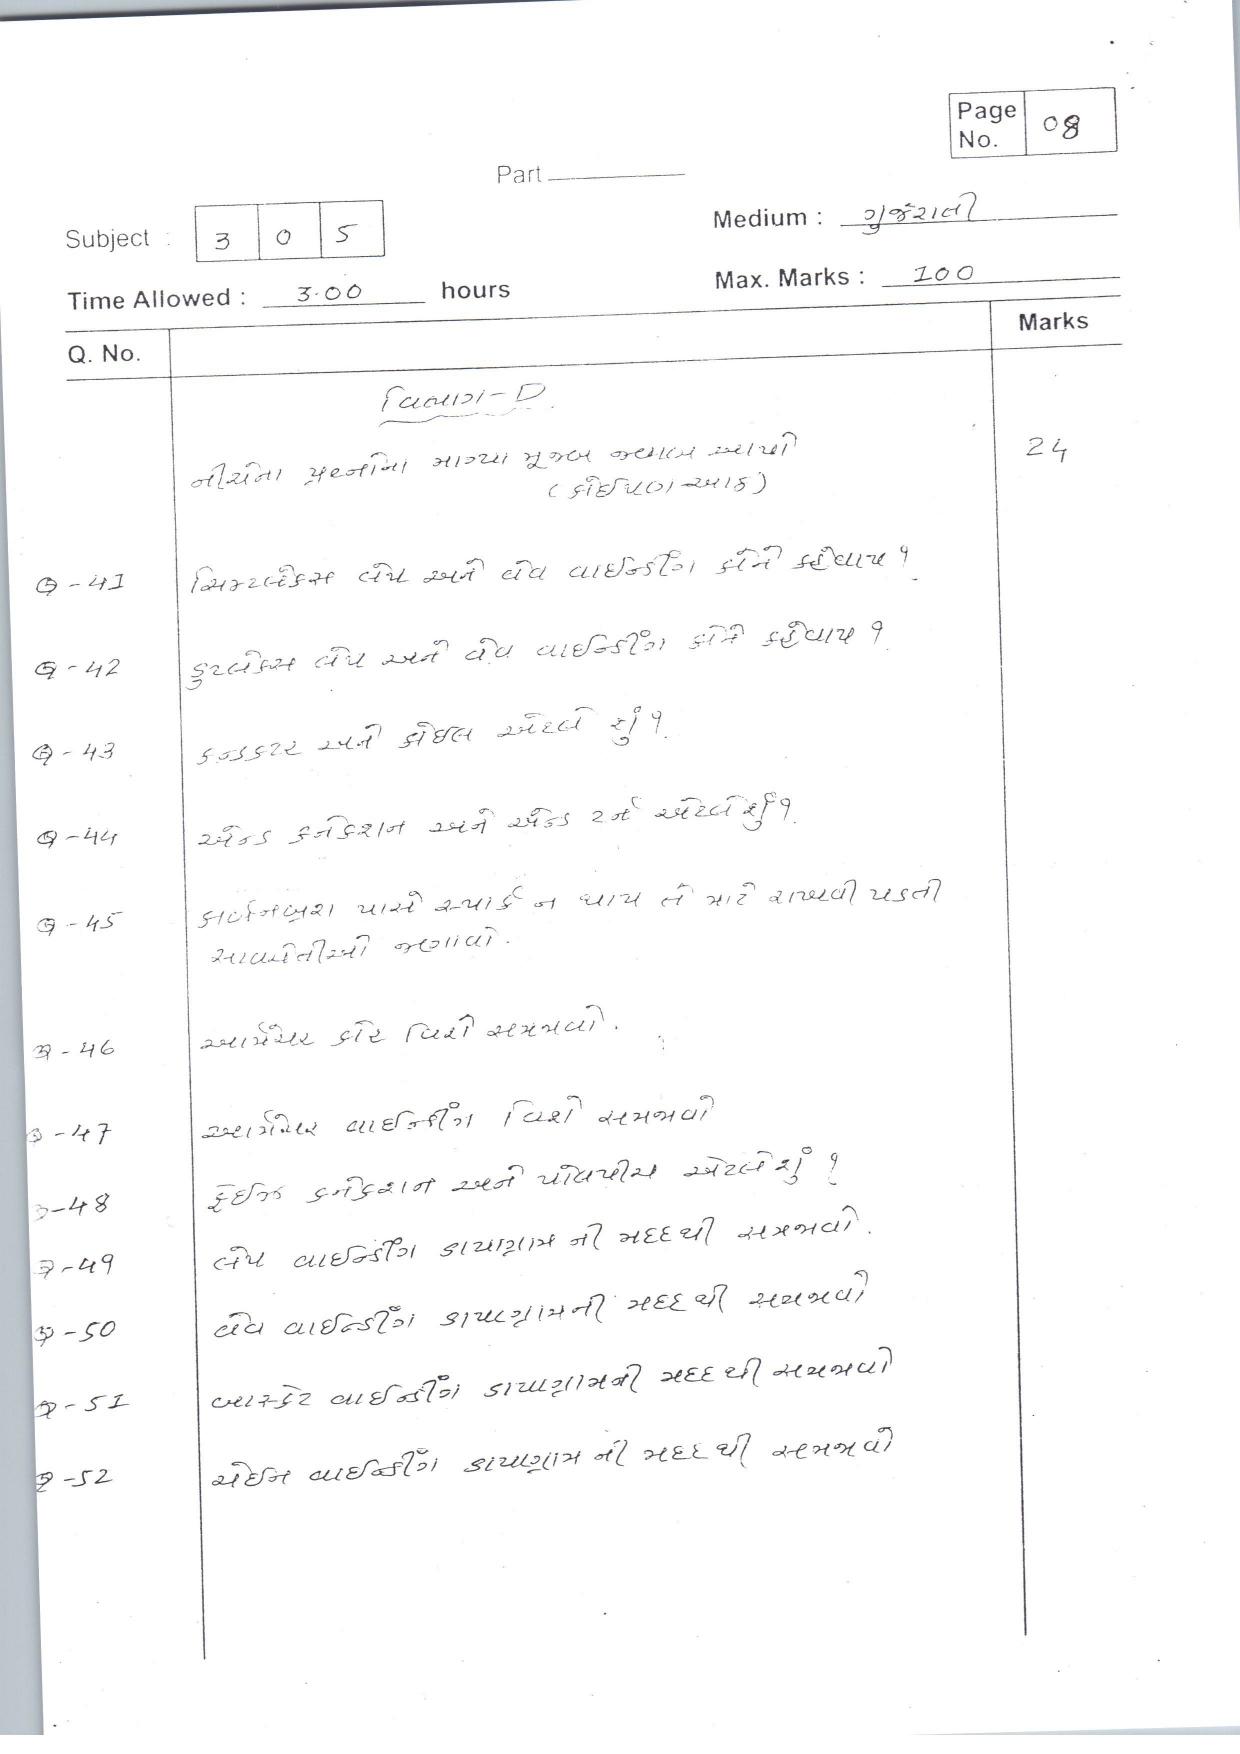 Page No. 08
Part
Subject : 3 0 5
Medium : ગુજરાતી
Time Allowed : 3.00 hours
Max. Marks : 100
Q. No.
Marks
વિભાગ-D
નીચેના પ્રશ્નોના માગ્યા મુજબ જવાબ આપો
24
(કોઈપણ આઠ)
Q-41 સિમ્પલેક્સ લેપ અને વેવ વાઈન્ડીંગ કોને કહેવાય ?
Q-42 ડુપ્લેક્સ લેપ અને વેવ વાઈન્ડીંગ કોને કહેવાય ?
Q-43 કન્ડકટર અને કોઈલ એટલે શું ?
Q-44 એન્ડ કનેકશન અને એન્ડ ટર્ન એટલે શું ?
Q-45 કાર્બનબ્રશ પાસે સ્પાર્ક ન થાય તે માટે રાખવી પડતી
સાવચેતીઓ જણાવો.
Q-46 આર્મેચર કોર વિશે સમજાવો.
Q-47 આર્મેચર વાઈન્ડીંગ વિશે સમજાવો
Q-48 ફેઈઝ કનેકશન અને પોલપીચ એટલે શું ?
Q-49 લેપ વાઈન્ડીંગ ડાયાગ્રામ ની મદદથી સમજાવો.
Q-50 વેવ વાઈન્ડીંગ ડાયાગ્રામની મદદથી સમજાવો
Q-51 બાસ્કેટ વાઈન્ડીંગ ડાયાગ્રામની મદદથી સમજાવો
Q-52 ચેઈન વાઈન્ડીંગ ડાયાગ્રામ ની મદદથી સમજાવો